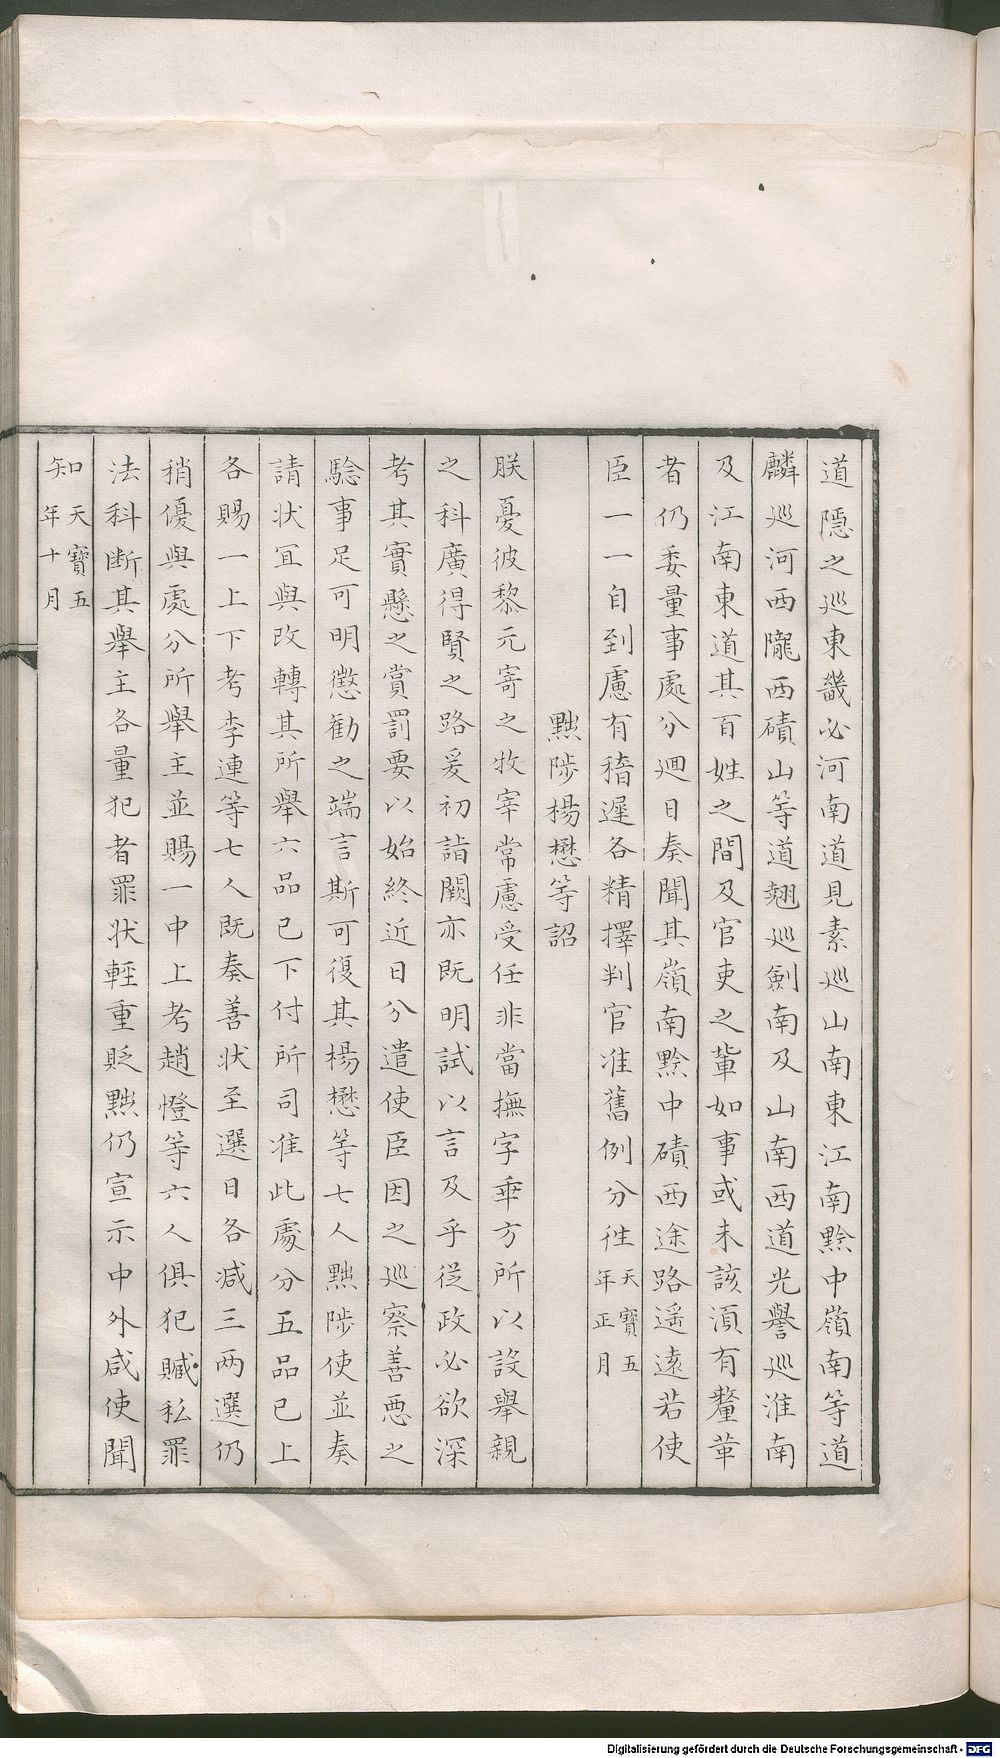 道隱之巡東畿必河南道見素巡山南東江南黔中嶺南等道
麟巡河西隴西磧山等道翹巡劍南及山南西道光譽巡淮南
及江南東道其百姓之間及官吏之輩如事或未該須有釐革
者仍委量事處分迴日奏聞其嶺南黔中磧西途路遥遠若使
臣一一自到慮有稽遲各精擇判官准舊例分徃天寶五年正月
黜陟楊懋等詔
朕憂彼黎元寄之牧宰常慮受任非當撫字乖方所以設舉親
之科廣得賢之路爰初詣闕亦既明試以言及乎從政必欲深
考其實懸之賞罰要以始終近日分遣使臣因之巡察善惡之
驗事足可明懲勸之端言斯可復其楊懋等七人黜陟使並奏
請狀冝與改轉其所舉六品已下付所司准此處分五品已上
各賜一上下考李連等七人既奏善狀至選日各减三两選仍
稍優與處分所舉主並賜一中上考趙憕等六人俱犯贓私罪
法科断其舉主各量犯者罪狀輕重貶黜仍宣示中外咸使聞
知天寶五年十月
Digitalisierung gefördert durch die Deutsche Forschungsgemeinschaft - DFG